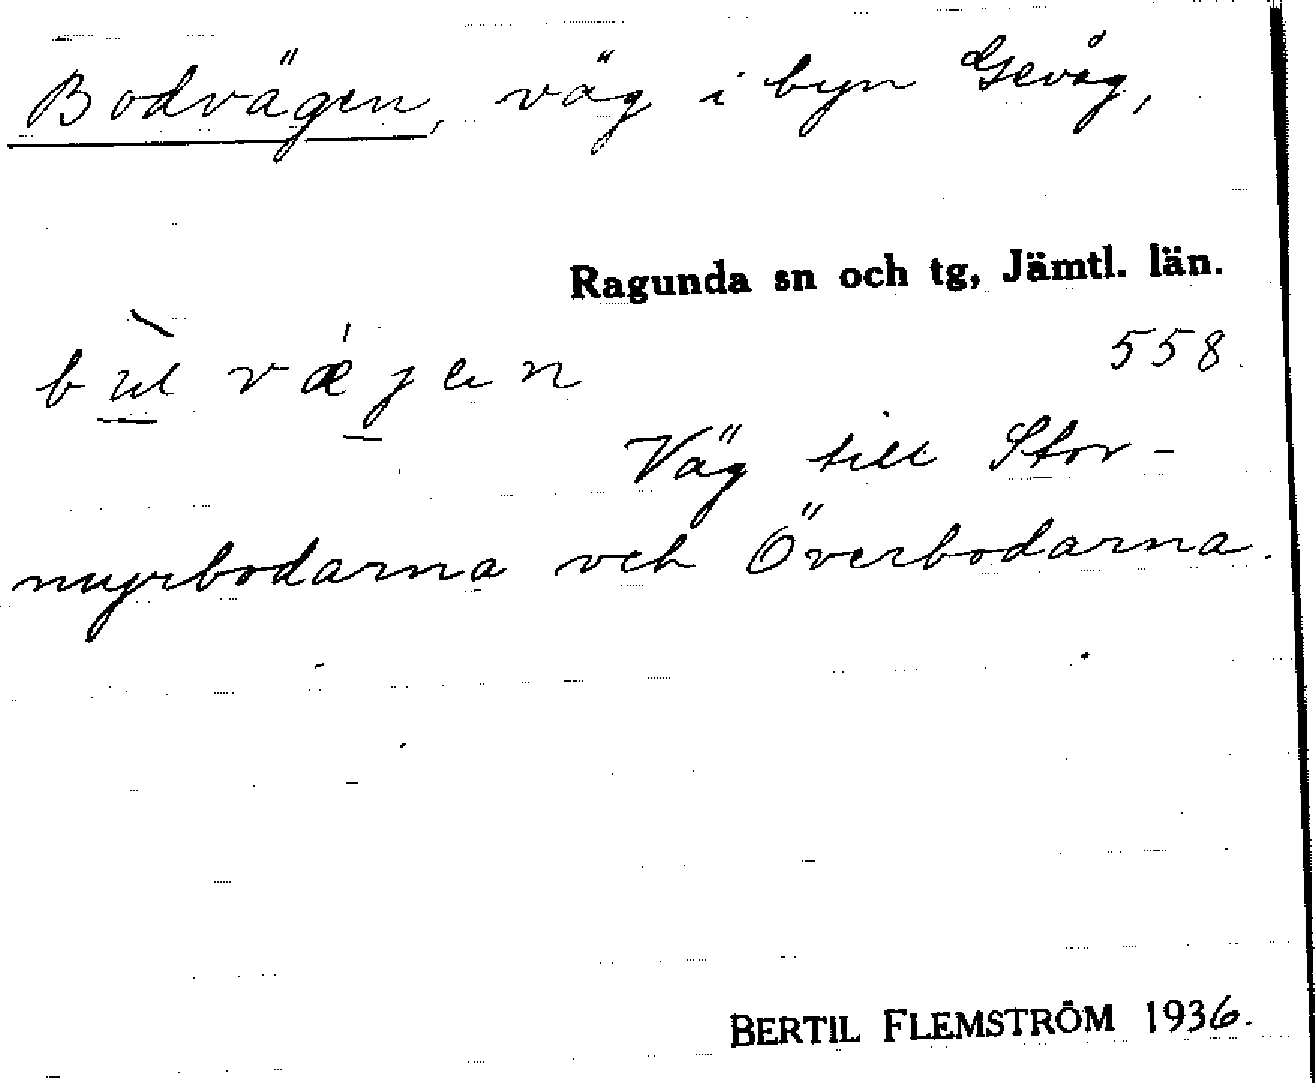 Bodvägen, väg i byn Gevåg,
Ragunda sn och tg, Jämtl. län.
558.
Väg till Stor-
myrbodarna och Överbodarna.
BERTIL FLEMSTRÖM 1936.